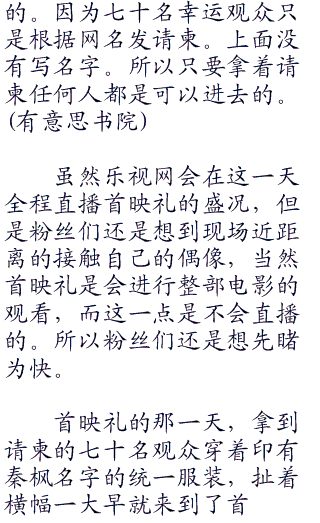 的。因为七十名幸运观众只
是根据网名发请柬。上面没
有写名字。所以只要拿着请
柬任何人都是可以进去的。
(有意思书院)
虽然乐视网会在这一天
全程直播首映礼的盛况，但
是粉丝们还是想到现场近距
离的接触自己的偶像，当然
首映礼是会进行整部电影的
观看，而这一点是不会直播
的。所以粉丝们还是想先睹
为快。
首映礼的那一天，拿到
请柬的七十名观众穿着印有
秦枫名字的统一服装，扯着
横幅一大早就来到了首